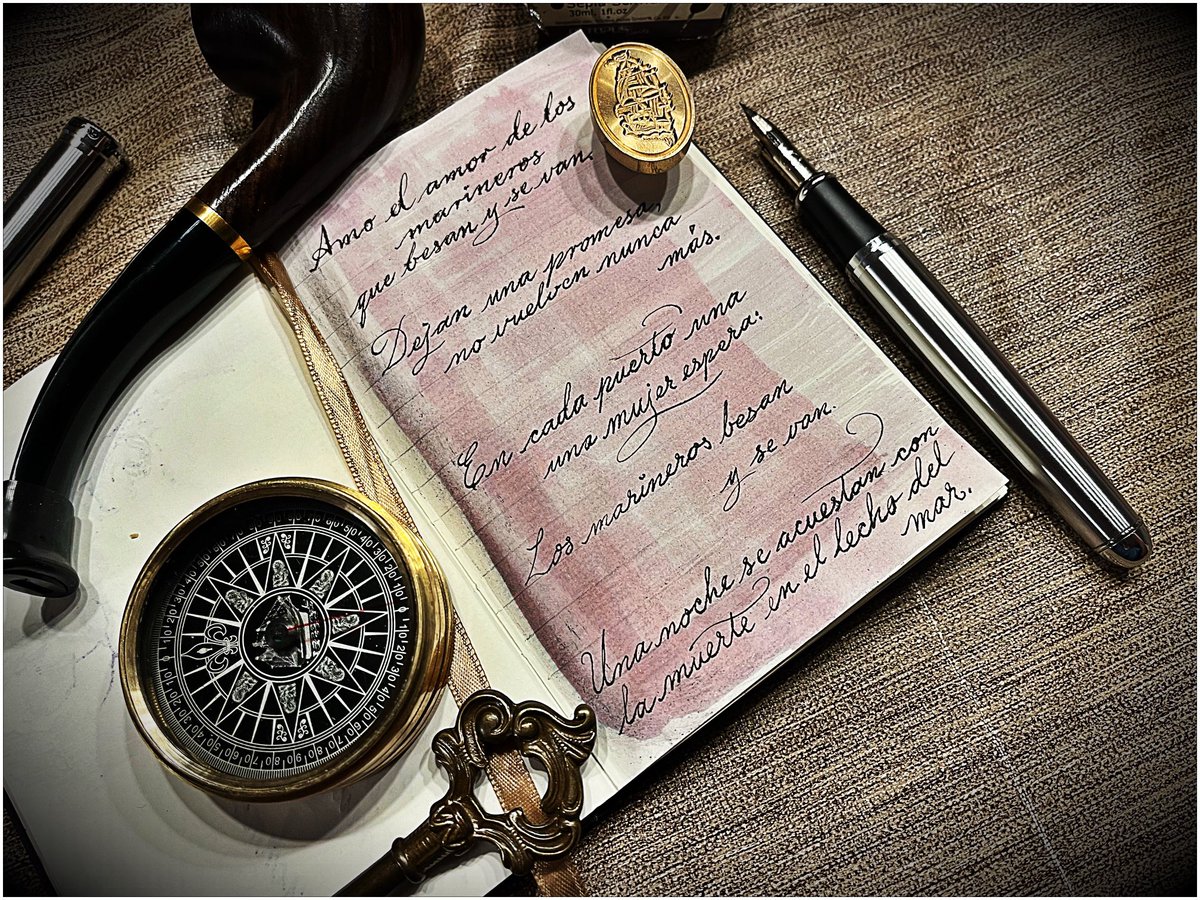 30ml, 1fl.oz
Amo el amor de los
marineros
que besan y se van.
Dejan una promesa,
no vuelven nunca
más.
En cada puerto una
una mujer espera:
Los marineros besan
y se van.
Una noche se acuestan con
la muerte en el lecho del
mar.